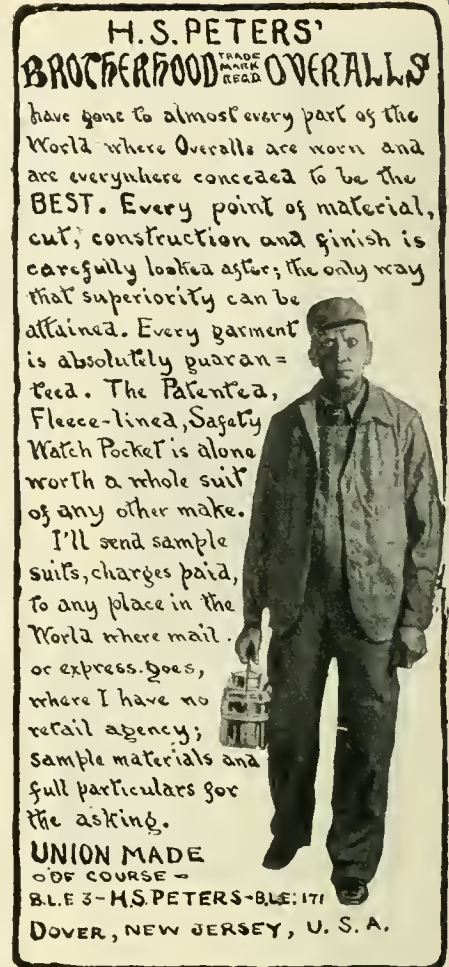 H.S. PETERS'
BROTHERHOOD TRADE MARK REG.D OVERALLS
have gone to almost every part of the
World where Overalls are worn and
are everywhere conceded to be the
BEST. Every point of material,
cut, construction and finish is
carefully looked after; the only way
that superiority can be
attained. Every garment
is absolutely guaran=
teed. The Patented,
Fleece-lined, Safety
Watch Pocket is alone
worth a whole suit
of any other make.
I'll send sample
suits, charges paid,
to any place in the
World where mail
or express goes,
where I have no
retail agency;
sample materials and
full particulars for
the asking.
UNION MADE
OF COURSE
B.L.E 3-H.S. PETERS-B.L.E: 171
DOVER, NEW JERSEY, U. S. A.